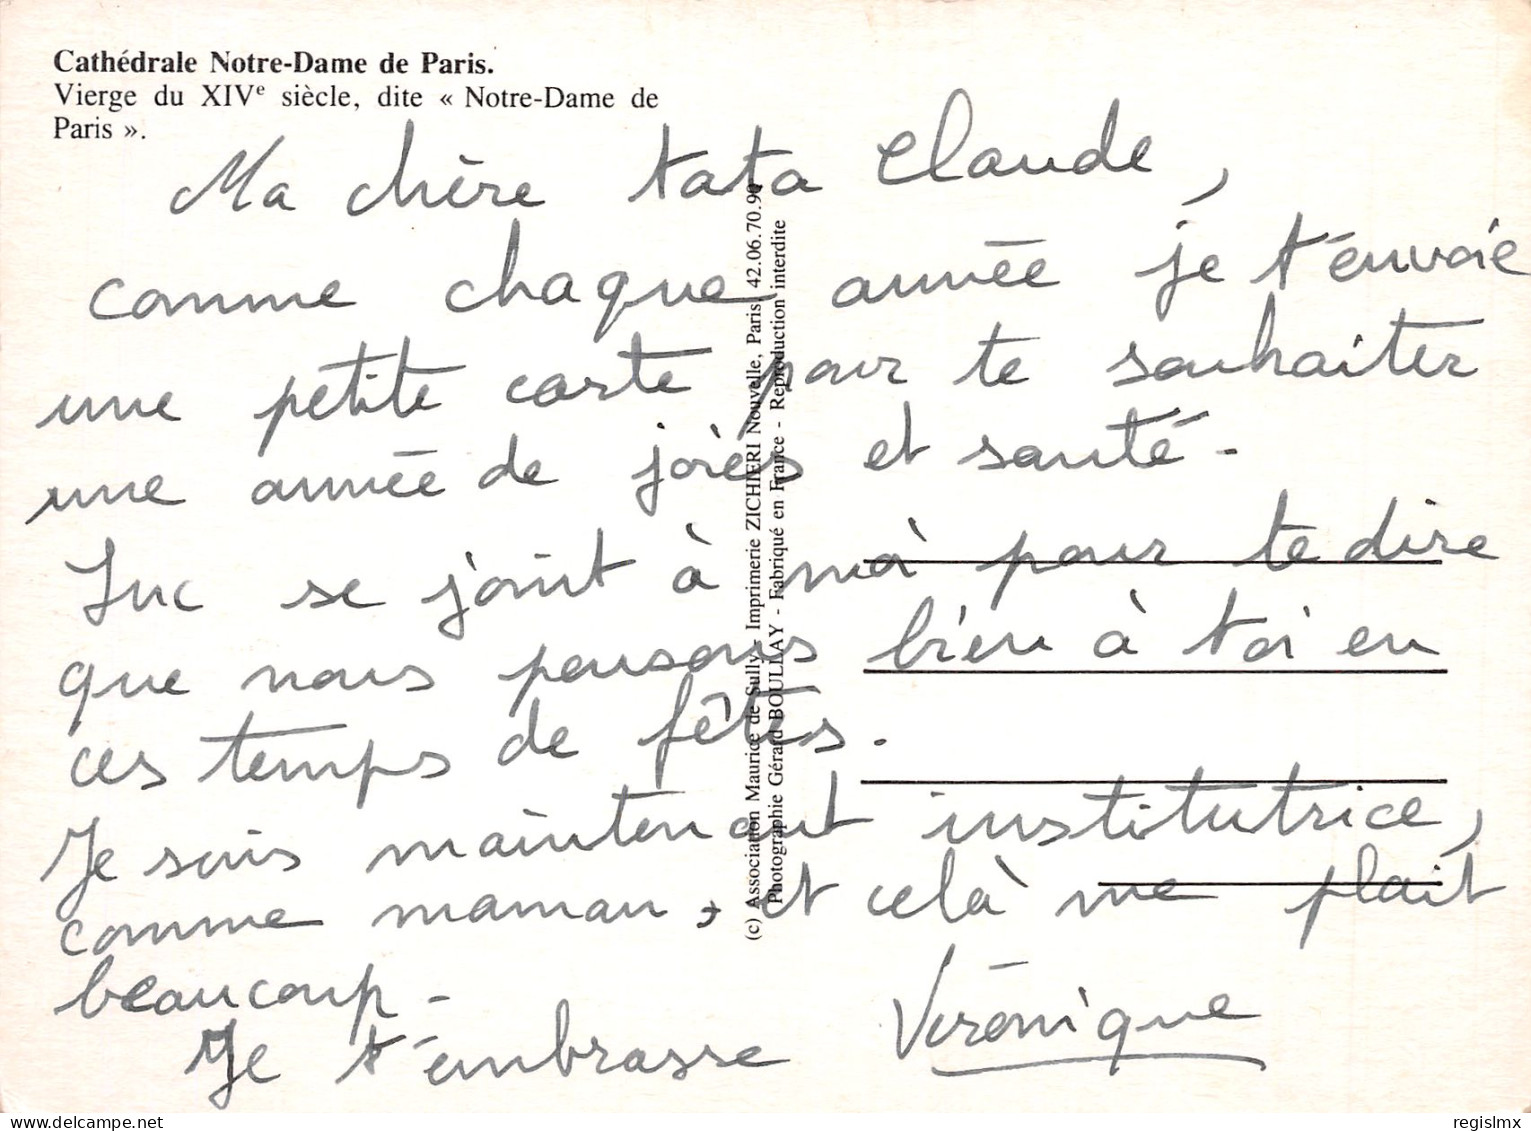 Cathédrale Notre-Dame de Paris.
Vierge du XIVe siècle, dite « Notre-Dame de
Paris ».
Ma chère tata Claude,
comme chaque année je t'envoie
une petite carte pour te souhaiter
une année de joies et santé -
Luc se joint à moi pour te dire
que nous pensons bien à toi en
ces temps de fêtes.
Je suis maintenant institutrice,
comme maman, et celà me plait
beaucoup -
Je t'embrasse Véronique
(c) Association Maurice de Sully - Imprimerie ZICHIERI Nouvelle, Paris, 42.06.70.90
Photographie Gérard BOULLAY - Fabriqué en France - Reproduction interdite
regislmx